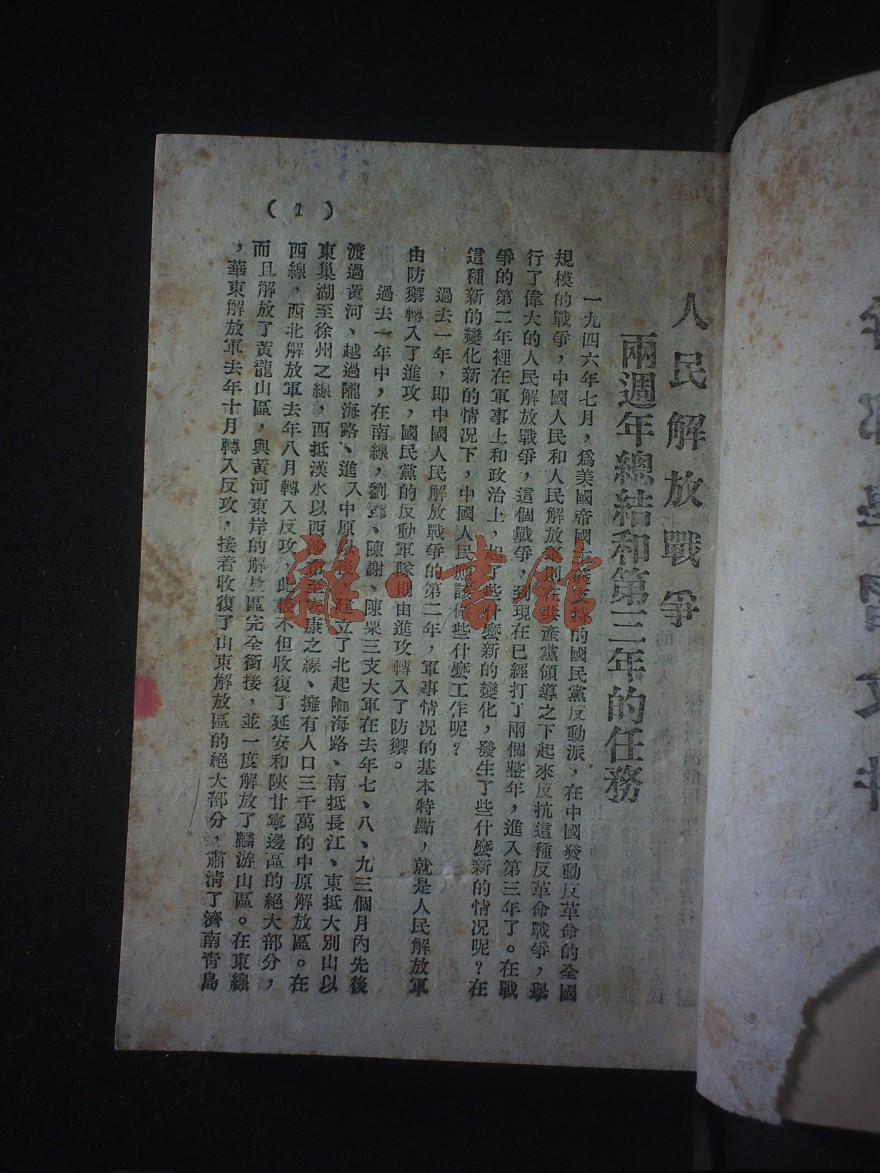 人民解放戰爭
兩週年總結和第三年的任務
一九四六年七月，爲美國帝國主義支持的國民黨反動派，在中國發動反革命的全國
規模的戰爭，中國人民和人民解放軍則在共產黨領導之下起來反抗這種反革命戰爭，舉
行了偉大的人民解放戰爭，這個戰爭，到現在已經打了兩個整年，進入第三年了。在戰
爭的第二年裡在軍事上和政治上，起了些什麼新的變化，發生了些什麼新的情况呢？在
這種新的變化新的情况下，中國人民應該做些什麼工作呢？
過去一年，即中國人民解放戰爭的第二年，軍事情况的基本特點，就是人民解放軍
由防禦轉入了進攻，國民黨的反動軍隊則由進攻轉入了防禦。
過去一年中，在南線，劉鄧、陳謝、陳粟三支大軍在去年七、八、九三個月內先後
渡過黃河、越過隴海路、進入中原 建立了北起隴海路、南抵長江、東抵大別山以
東巢湖至徐州之線，西抵漢水以西 康之線、擁有人口三千萬的中原解放區。在
西線，西北解放軍去年八月轉入反攻，此後不但收復了延安和陝甘寧邊區的絕大部分，
而且解放了黃龍山區，與黃河東岸的解放區完全銜接，並一度解放了麟游山區。在東線
，華東解放軍去年十月轉入反攻，接着收復了山東解放區的絕大部分，肅清了濟南青島
(1)
雜·書館